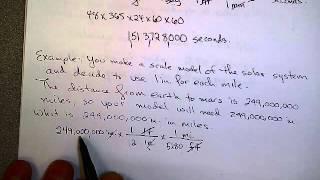 48 x 365 x 24 x 60 x 60
1,513,728,000 seconds.
Example: You make a scale model of the solar system
and decide to use 1 in for each mile.
The distance from earth to mars is 249,000,000
miles, so your model will need 249,000,000 in
What is 249,000,000 in in miles.
249,000,000 in x 1 ft x 1 mi
12 in 5280 ft